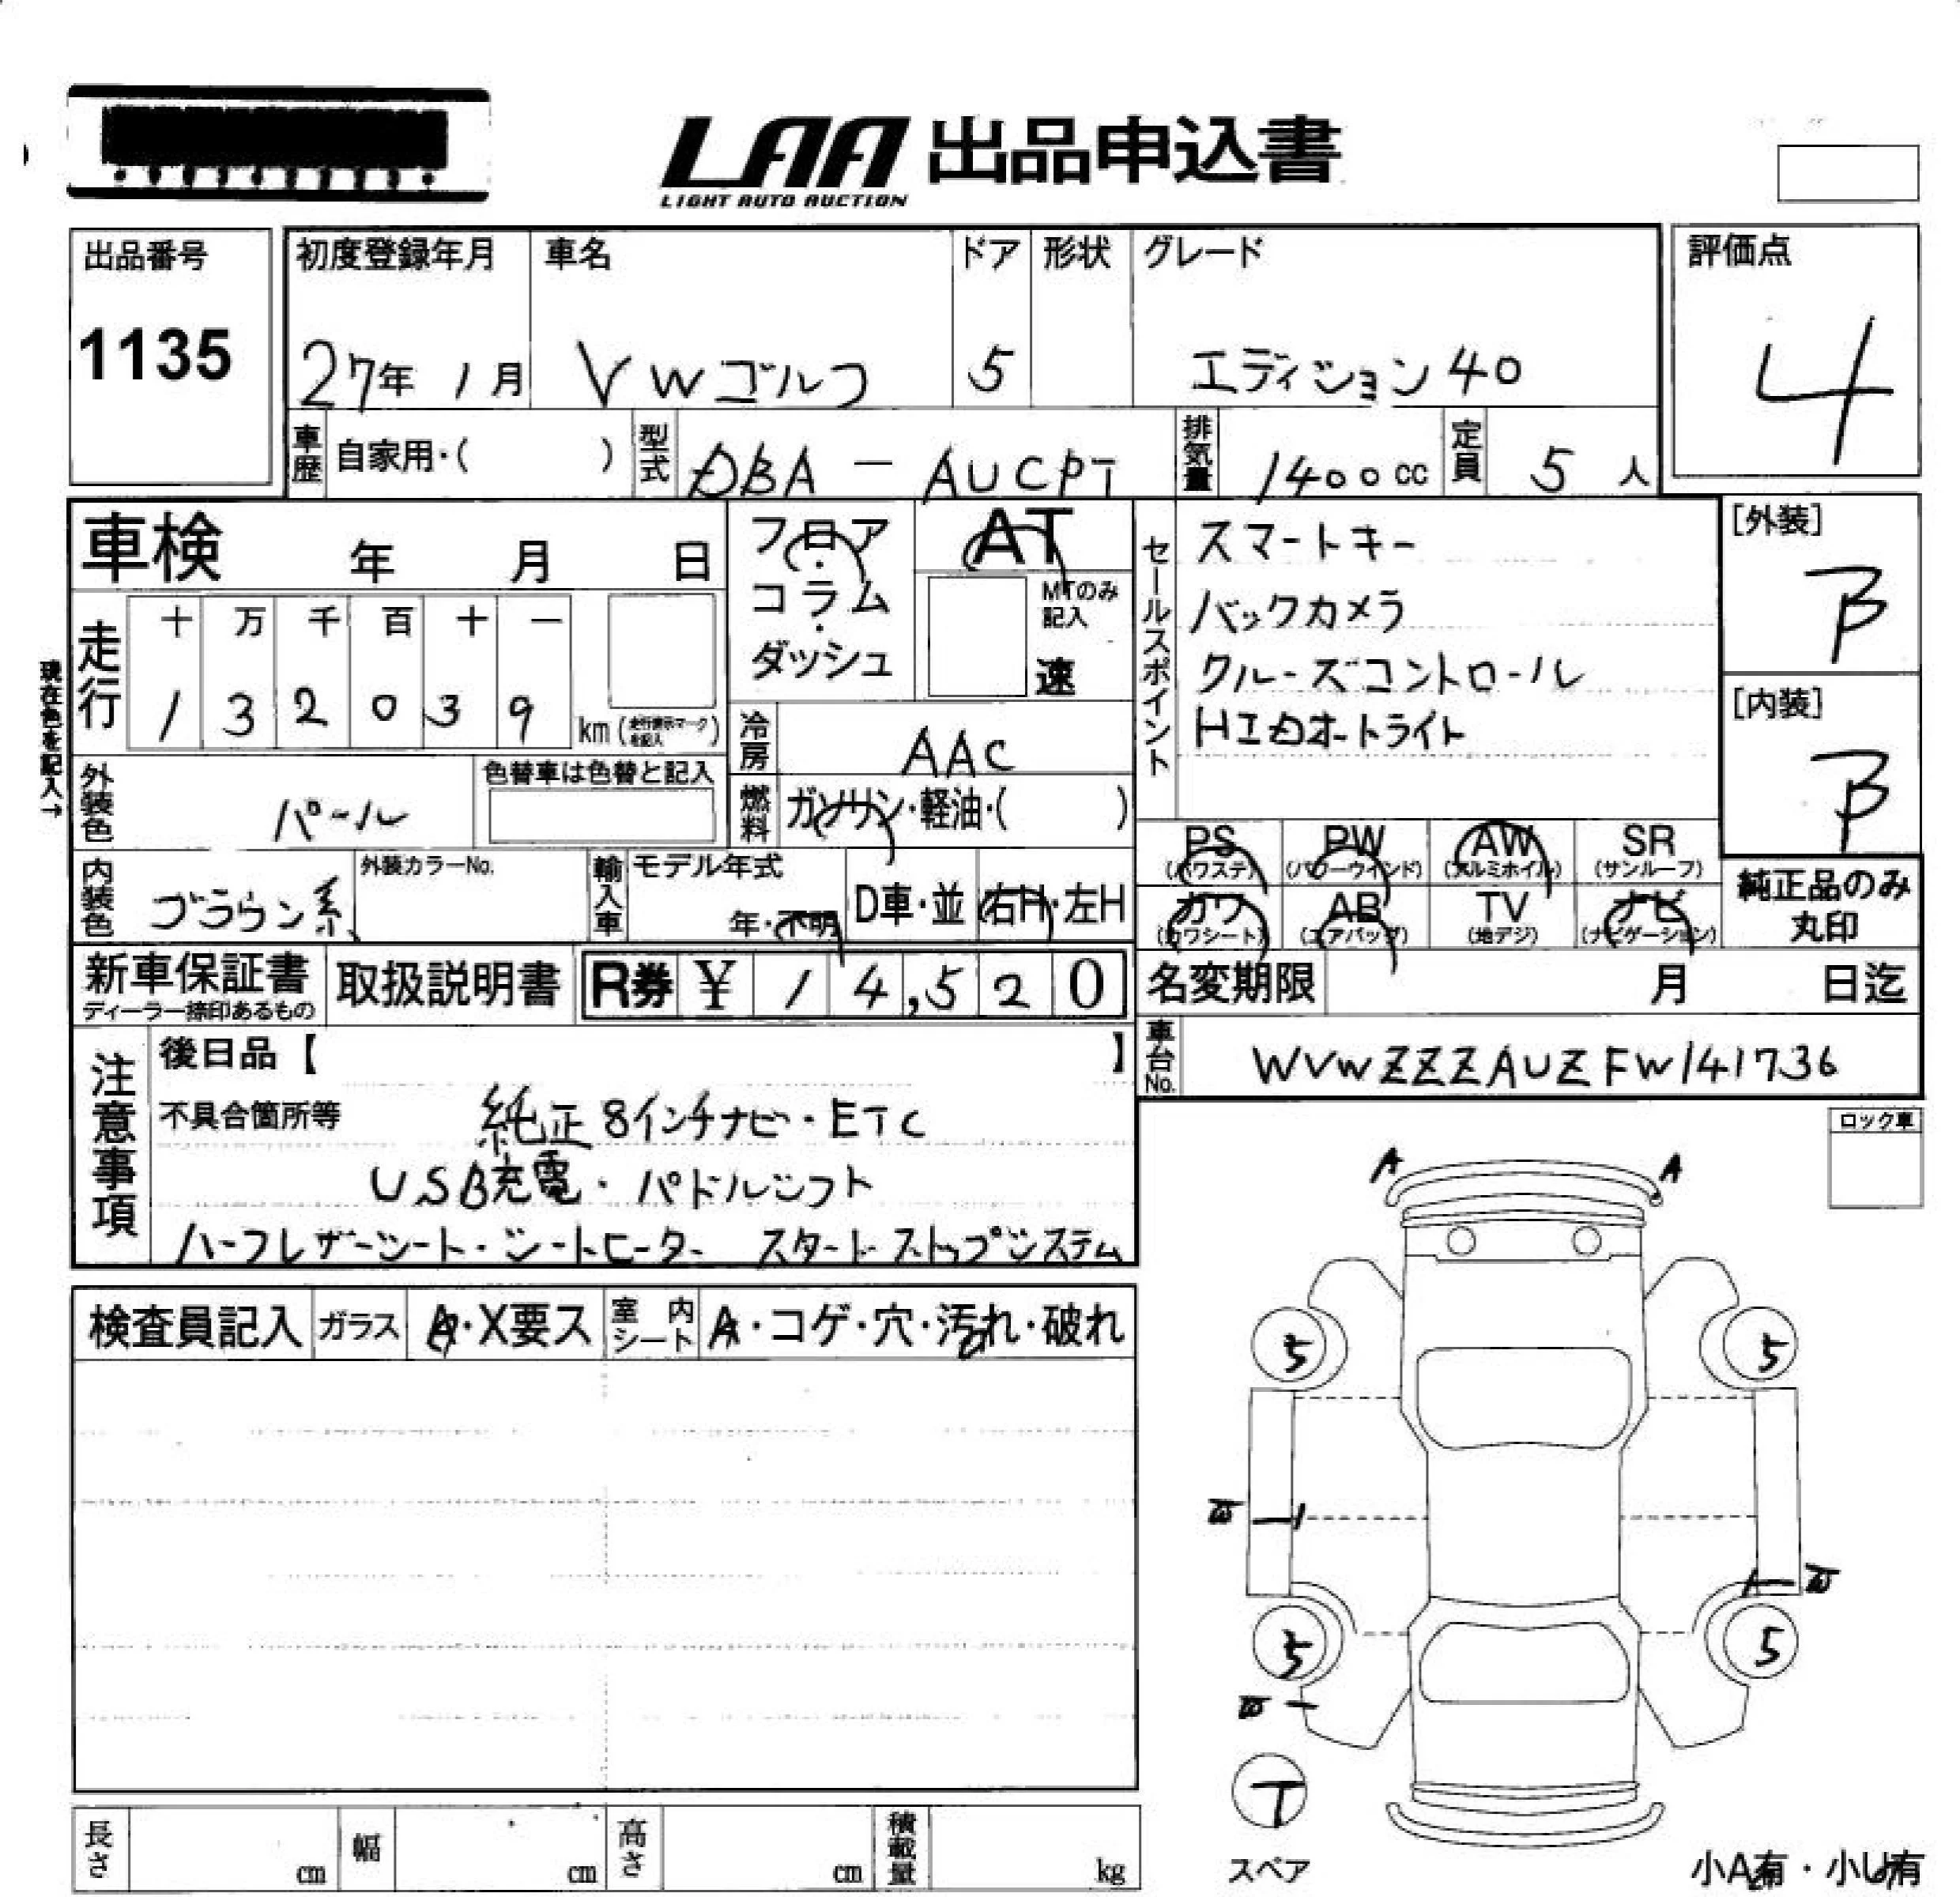 LAA 出品申込書
LIGHT AUTO AUCTION
出品番号
1135
初度登録年月 車名 ドア 形状 グレード
27年 1月 VWゴルフ 5 エディション40
評価点
4
車歴 自家用・( ) 型式 DBA - AUCPT 排気量 1400cc 定員 5人
車検 年 月 日
フロア・コラム・ダッシュ
AT
MTのみ記入
速
現在色を記入→
走行
十 万 千 百 十 一
1 3 2 0 3 9 km(走行表示マークを記入)
冷房 AAC
セールスポイント
スマートキー
バックカメラ
クルーズコントロール
HIDオートライト
[外装]
B
[内装]
B
外装色 パール
色替車は色替と記入
燃料 ガソリン・軽油・( )
内装色 ブラウン系
外装カラーNo.
輸入車 モデル年式
年・不明 D車・並 右H・左H
PS PW AW SR
(パワステ) (パワーウインド) (アルミホイル) (サンルーフ)
カワ AB TV ナビ
(カワシート) (エアバッグ) (地デジ) (ナビゲーション)
純正品のみ
丸印
新車保証書
ディーラー捺印あるもの
取扱説明書
R券 ¥ 14,520
名変期限 月 日迄
車台No. WVWZZZAUZFW141736
注意事項
後日品【 】
不具合箇所等 純正8インチナビ・ETC
USB充電・パドルシフト
ハーフレザーシート・シートヒーター スタートストップシステム
ロック車
検査員記入 ガラス A・X要ス 室内シート A・コゲ・穴・汚れ・破れ
A A
5 5
W
W
5 5
W
T
スペア
小A有・小U有
長さ cm 幅 cm 高さ cm 積載量 kg